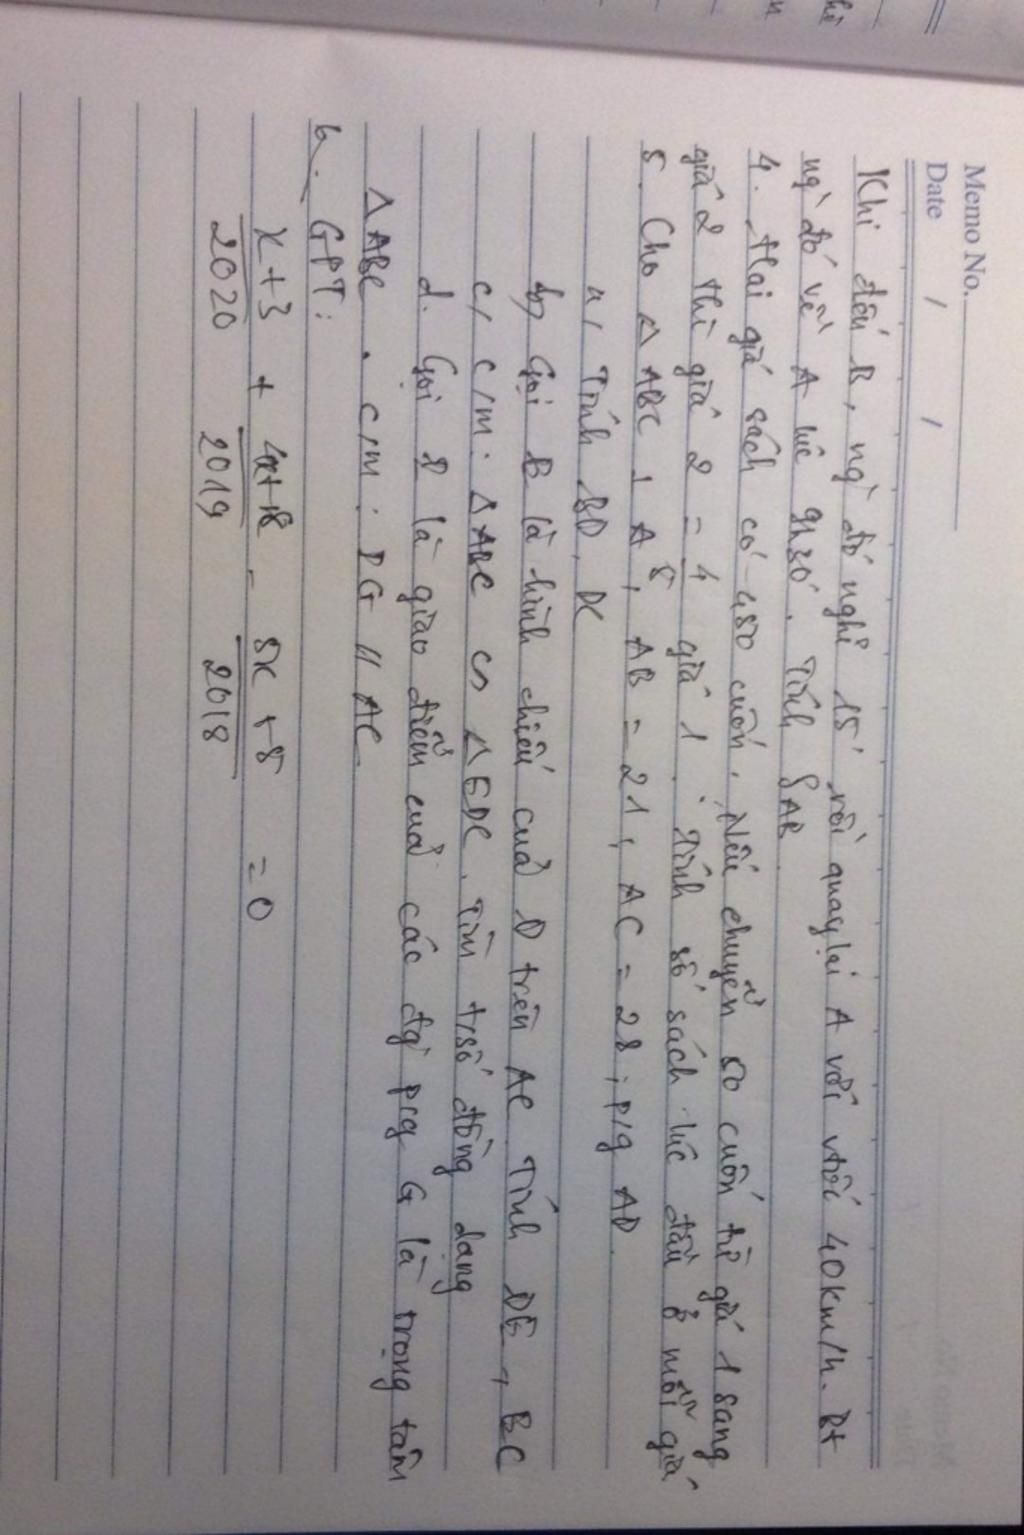 Memo No.
Date / /
Khi đến B, ngỳ đó nghỉ 15' rồi quay lại A với vtốc 40km/h. Bt
ngỳ đó về A lúc 9h30'. Tính SAB.
4. Hai giá sách có 450 cuốn. Nếu chuyển 50 cuốn từ giá 1 sang
giá 2 thì giá 2 = 4/5 giá 1. Tính số sách lúc đầu ở mỗi giá
5. Cho △ABC ⊥ A, AB = 21, AC = 28; p/g AD.
a, Tính BD, DC
b, Gọi E là hình chiếu của D trên AC Tính DE, BC
c, c/m: △ABC ∽ △EDC. Tìm t/số đồng dạng
d. Gọi I là giao điểm của các đg p/g G là trọng tâm
△ABC. c/m: IG // AC
6. GPT:
x+3/2020 + 4x+18/2019 - 5x+8/2018 = 0